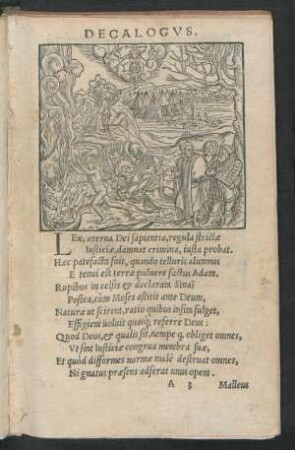 DECALOGVS.
LEx, æterna Dei sapientia, regula strictæ
Iusticiæ, damnat crimina, iusta probat.
Hæc patefacta fuit, quando telluris alumnus
E tenui est terræ puluere factus Adam.
Rupibus in celsis & declaram Sinai
Postea, cùm Moses astitit ante Deum,
Naturæ ut scirent, ratio quibus insita fulget,
Effigiem uoluit quasq; referre Deus:
Quòd Deus, & qualis sit, nempe q, obliget omnes,
Vt sint Iusticiæ congrua membra suæ,
Et quòd difformes normæ malè destruat omnes,
Ni gnatus præsens adferat unus opem.
A 3 Malleus